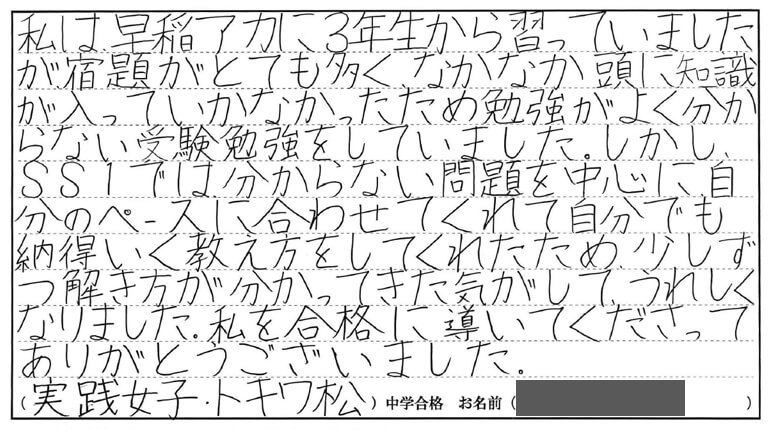 私は、早稲アカに3年生から習っていました
が宿題がとても多く、なかなか頭に知識
が入っていかなかったため勉強がよく分か
らない受験勉強をしていました。しかし、
SS1では分からない問題を中心に、自
分のペースに合わせてくれて自分でも
納得いく教え方をしてくれたため、少しず
つ解き方が分かってきた気がして、うれしく
なりました。私を合格に導いてくださって
ありがとうございました。
(実践女子・トキワ松)中学合格 お名前( )